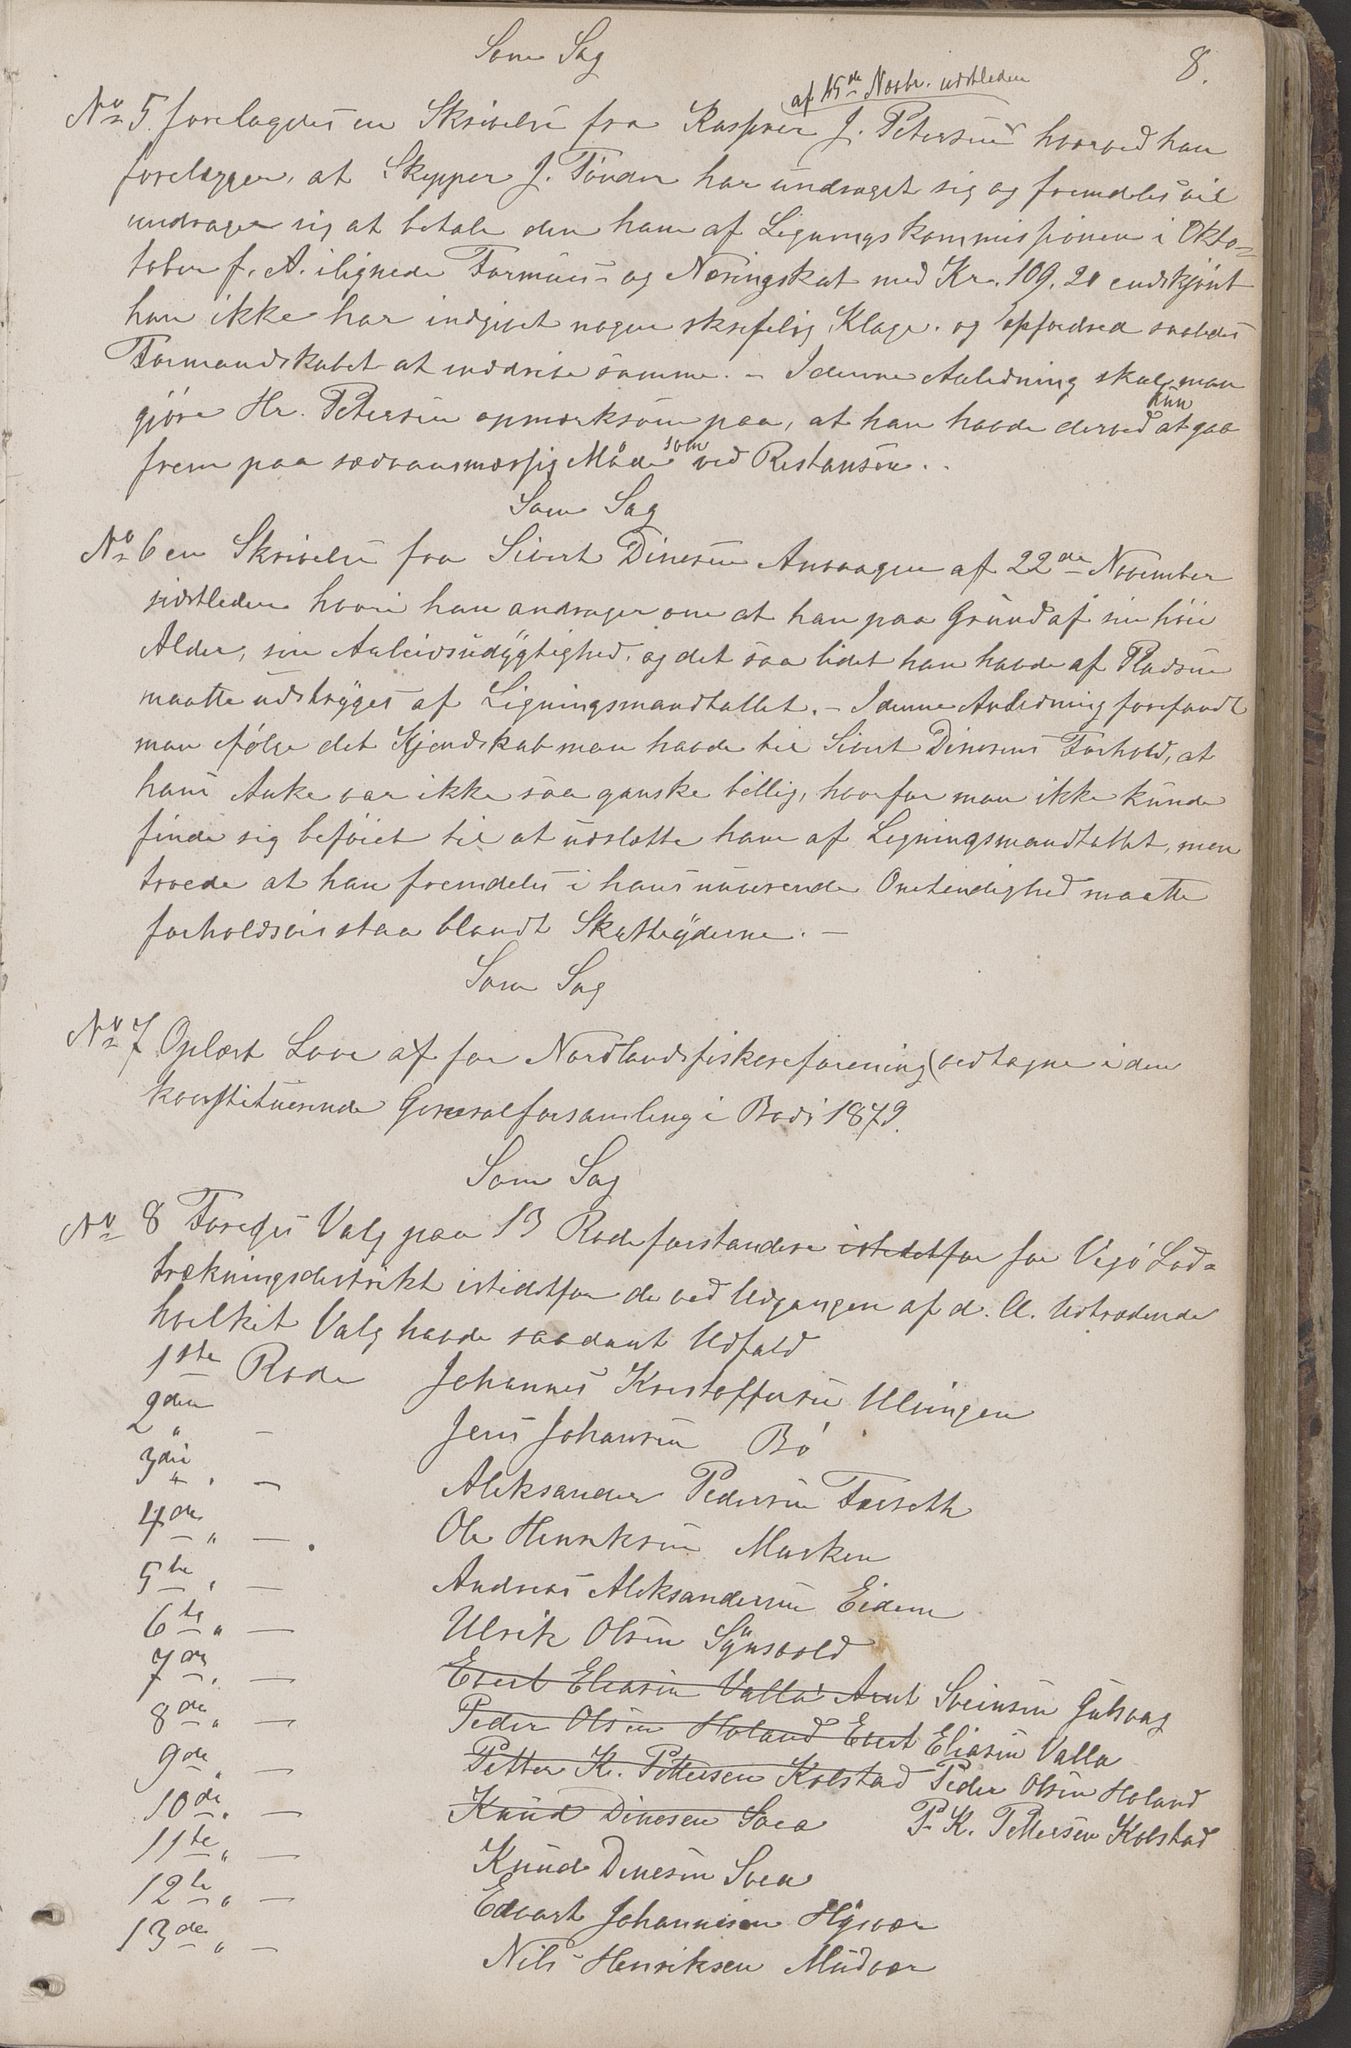 Som Sag
8.
af 15de Novbr. sidstleden
No 5. forelagdes en Skrivelse fra Kasper J. Petersen hvorved han
forelægger, at Skypper J. Tønder har undraget sig og fremdeles vil
undrage sig at betale den ham af Ligningskommissionen i Okto-
tober f. A. ilignede Formues- og Næringskat med Kr. 109.20 endskjønt
han ikke har indgivet nogen skriftlig Klage. og opfordred saaledes
Formandskabet at inddrive samme. - I denne Anledning skal man
gjøre Hr. Petersen opmærksom paa, at han havde derved kun at gaa
frem paa sædvansmæssig Måde som ved Restansen..
Som Sag
No 6 en Skrivelse fra Sivert Dinesen Anvaagen af 22de November
sidstleden hvori han andrager om at han paa Grund af sin høie
Alder, sin Arbeidsudygtighed, og det saa lidet han havde af Pladsen
maatte udstryges af Ligningsmandtallet. - I denne Anledning forefandt
man ifølge det Kjendskab man havde til Sivert Dinesens Forhold, at
hans Anke var ikke saa ganske billig, hvorfor man ikke kunde
finde sig beføiet til at udslette ham af Ligningsmandtallet, men
troede at han fremdeles i hans nuverende Omstendighed maatte
forholdsvis staa blandt Skatteyderne. -
Som Sag
No 7 Oplæst Love af for Nordlands fiskereforening (vedtagne i den
konstituerende Generalforsamling i Bodø 1879.
Som Sag
No 8 Foretoges Valg paa 13 Rodeforstandere istedetfor for Vegø Lod-
trækningsdistrikt istedetfor de ved Udgangen af d. A. Udtrædende
hvilket Valg havde saadant Udfald
1ste Rode Johannes Kristoffersen Ulvingen
2den " - Jens Johansen Bø
3die " - Aleksander Pedersen Forseth
4de " - Ole Henriksen Marken
5te " - Andreas Aleksandersen Eidem
6te " - Ulrik Olsen Synsvold
7de " - Evert Eliasen Valla Arnt Sveinsen Gulsvag
8de " - Peder Olsen Holand Evert Eliasen Valla
9de " - Petter K. Pettersen Kolstad Peder Olsen Holand
10de " - Knud Dinesen Svea P. K. Pettersen Kolstad
11te " - Knud Dinesen Svea
12te " - Edvart Johannesen Hysvær
13de " - Nils Henriksen Mudvær